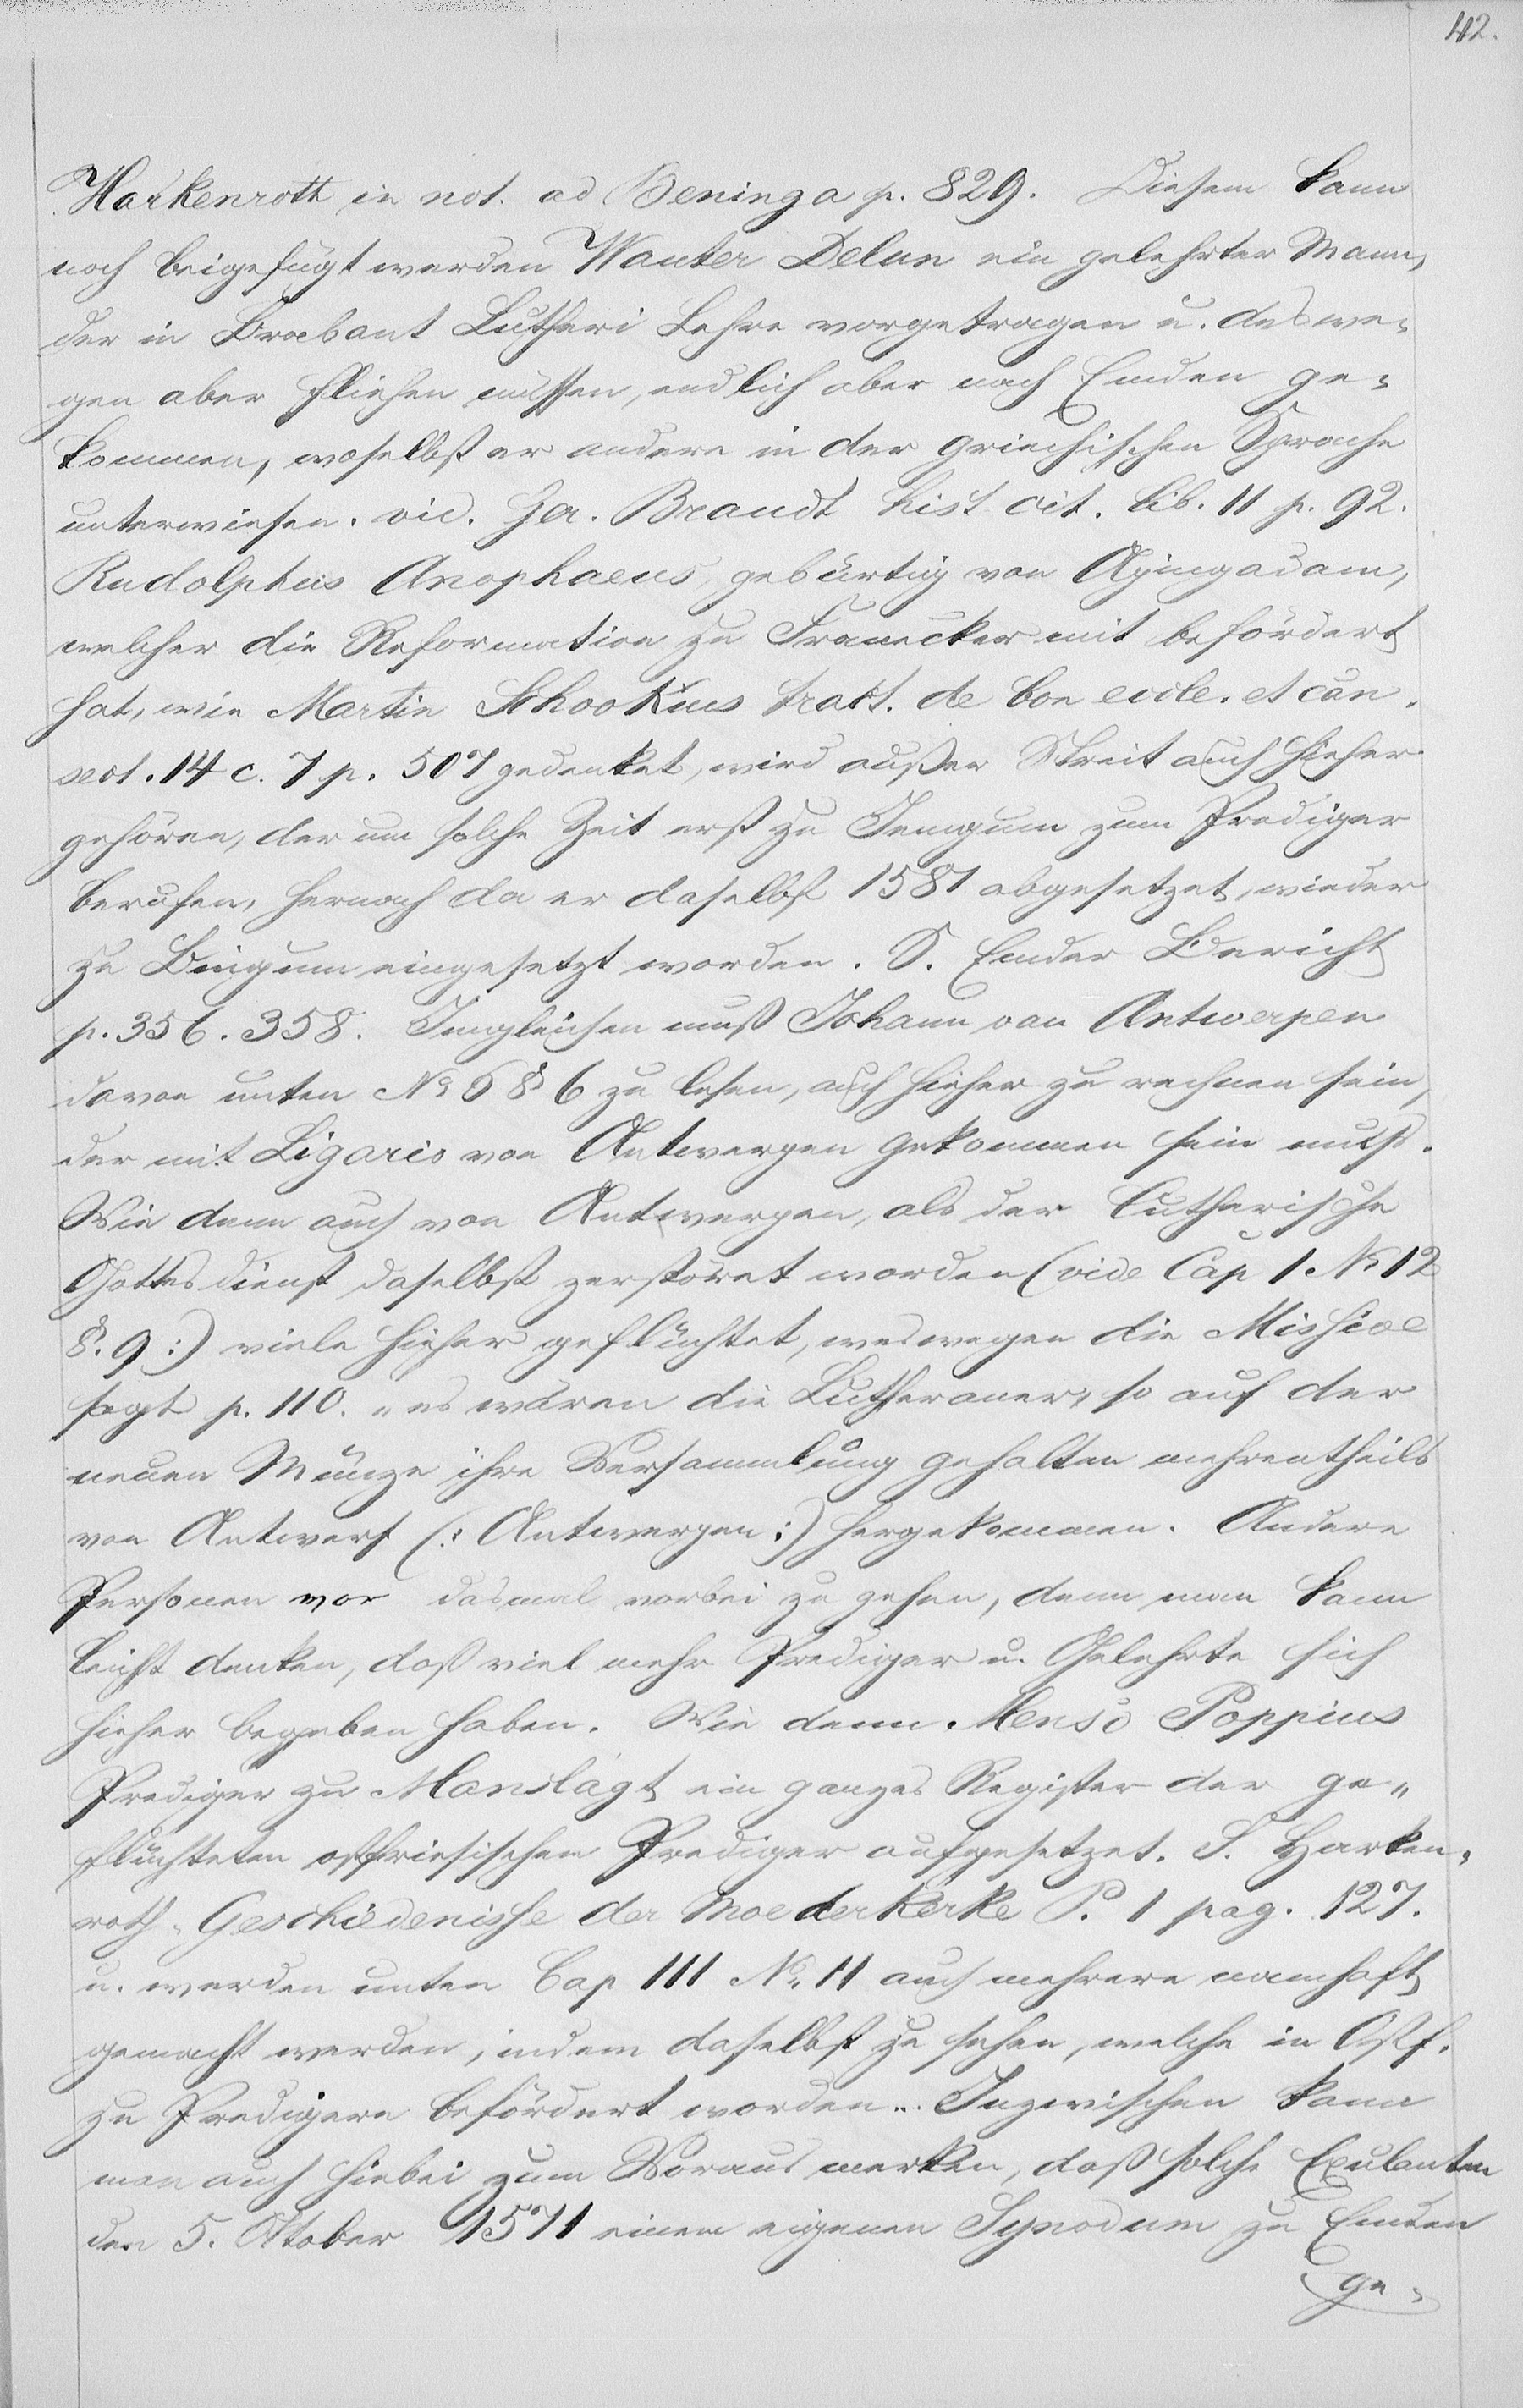 42.
Harkenroth in not. ad Beninga p. 829. Diesem kann
noch beigefügt werden Wauter Delun ein gelehrter Mann,
der in Brabant Lutheri Lehre vorgetragen u. deswe-
gen aber fliehen müssen, endlich aber nach Emden ge-
kommen, woselbst er andere in der griechischen Sprache
unterwiesen. vid. Ger. Brandt hist. cit. lib. 11 p. 92.
Rudolphus Anophaeus, gebürtig von Apingadam,
welcher die Reformation zu Franecker mit befördert
hat, wie Martin Schookius tratt. de bon eccle. et can.
sect. 14 c. 7 p. 507 gedenket, wird außer Streit auch hieher
gehören, der um solche Zeit erst zu Jemgum zum Prediger
berufen, hernach da er daselbst 1581 abgesetzet, wieder
zu Bingum eingesetzt worden. S. Emder Bericht
p. 356. 358. Imgleichen muß Johann van Antwerpen
davon unten No 6 § 6 zu lesen, auch hieher zu rechnen sein,
der mit Ligario von Antwerpen gekommen sein muß.
Wie denn auch von Antwerpen, als der Lutherische
Gottesdienst daselbst zerstöret worden (vide Cap 1 No 12
§. 9:) viele hieher geflüchtet, weswegen die Missive
sagt p. 110. „es wären die Lutheraner, so auf der
neuen Münze ihre Versammlung gehalten mehrentheils
von Antwerf (: Antwerpen :) hergekommen. Andere
Personen vor dasmal vorbei zu gehen, denn man kann
leicht denken, daß viel mehr Prediger u. Gelehrte sich
hieher begeben haben. Wie denn Menso Poppius
Prediger zu Manslagt ein ganzes Register der ge-
flüchteten ostfriesischen Prediger aufgesetzet. S. Harken-
roth Geschiedenisse der Moederkerke P. 1 pag. 127.
u. werden unten Cap III No. 11 auch mehrere namhaft
gemacht werden, indem daselbst zu sehen, welche in Ostf.
zu Predigern befördert worden. Inzwischen kann
man auch hiebei zum Voraus merken, daß solche Exulanten
den 5. Oktober 1571 einen eigenen Synodum zu Emden
ge-